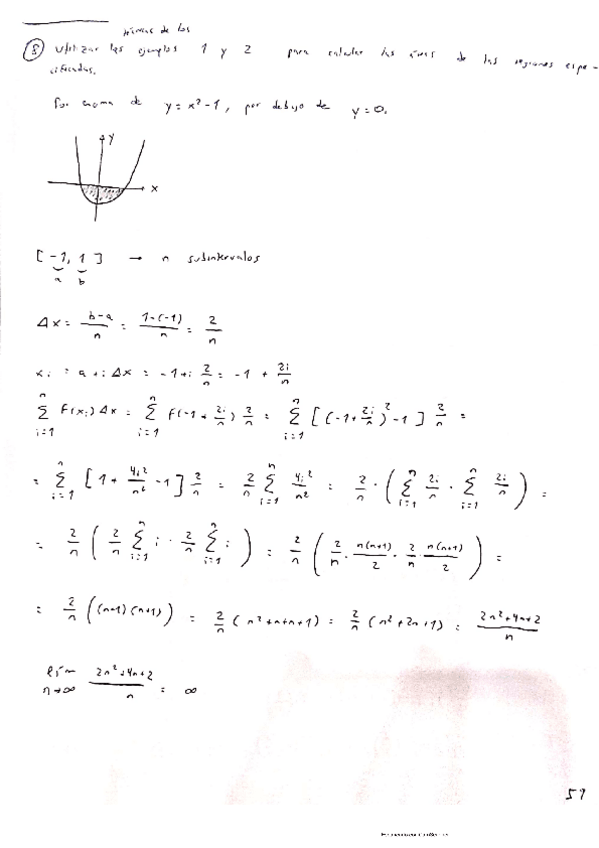 técnicas de los
8 Utilizar los ejemplos 1 y 2 para calcular las áreas de las regiones espe-
cificadas.
Por encima de y = x² - 1, por debajo de y = 0.
y
x
[-1, 1] → n subintervalos
a b
Δx = b-a/n = 1-(-1)/n = 2/n
xᵢ = a + i Δx = -1 + i 2/n = -1 + 2i/n
n∑i=1 f(xᵢ) Δx = n∑i=1 f(-1 + 2i/n) 2/n = n∑i=1 [(-1 + 2i/n)² - 1] 2/n =
= n∑i=1 [1 + 4i²/n² - 1] 2/n = 2/n n∑i=1 4i²/n² = 2/n · (n∑i=1 2i/n · n∑i=1 2i/n) =
= 2/n (2/n n∑i=1 i · 2/n n∑i=1 i) = 2/n (2/n · n(n+1)/2 · 2/n · n(n+1)/2) =
= 2/n ((n+1)(n+1)) = 2/n (n² + n + n + 1) = 2/n (n² + 2n + 1) = 2n² + 4n + 2/n
lím n→∞ 2n² + 4n + 2/n = ∞
51